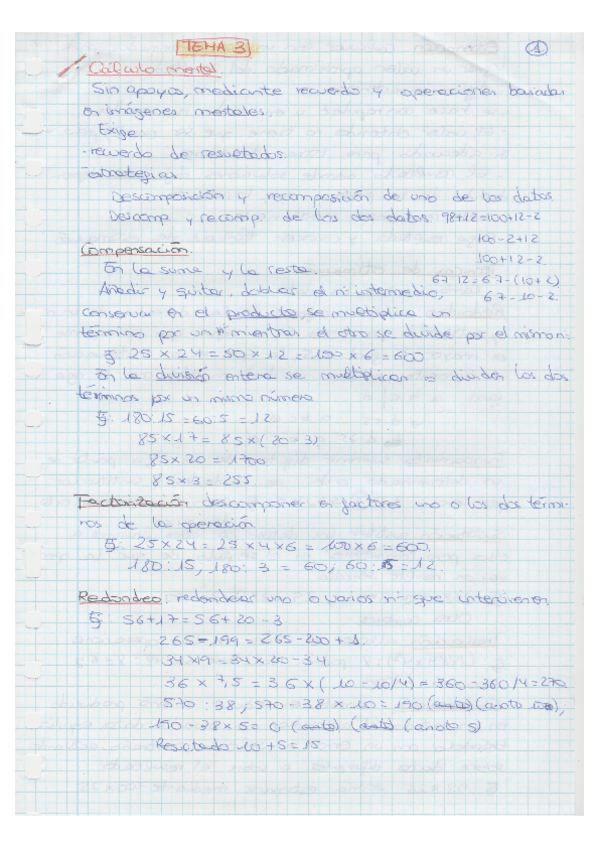 TEMA 3
1
Cálculo mental.
Sin apoyos, mediante recuerdo y operaciones basadas
en imágenes mentales.
Exige:
- recuerdo de resultados
- estrategias
Descomposición y recomposición de uno de los datos
Descomp. y recomp. de los dos datos 98+12=100+12-2
100-2+12
100+12-2
Compensación.
En la suma y la resta.
67-12=67-(10+2)
Añadir y quitar, doblar el nº intermedio,
67-10-2.
conservar en el producto, se multiplica un
término por un nº mientras el otro se divide por el mismo n:
Ej. 25 x 24 = 50 x 12 = 100 x 6 = 600
En la división entera se multiplican o dividen los dos
términos por un mismo número
Ej. 180:15 = 60:5 = 12
85x17 = 85x(20-3)
85x20 = 1700
85x3 = 255
Factorización descomponer en factores uno o los dos térmi-
nos de la operación
Ej: 25x24 = 25x4x6 = 100x6 = 600.
180:15, 180:3 = 60, 60:5 = 12.
Redondeo: redondear uno o varios nº que intervienen
Ej 56+17 = 56+20-3
265-199 = 265-200+1.
34x19 = 34x20-34
36 x 7,5 = 36x(10-10/4) = 360-360/4 = 270
570:38, 570-38 x 10 = 190 (anoto 10),
190-38x5 = 0 (anoto 5)
Resultado 10+5 = 15